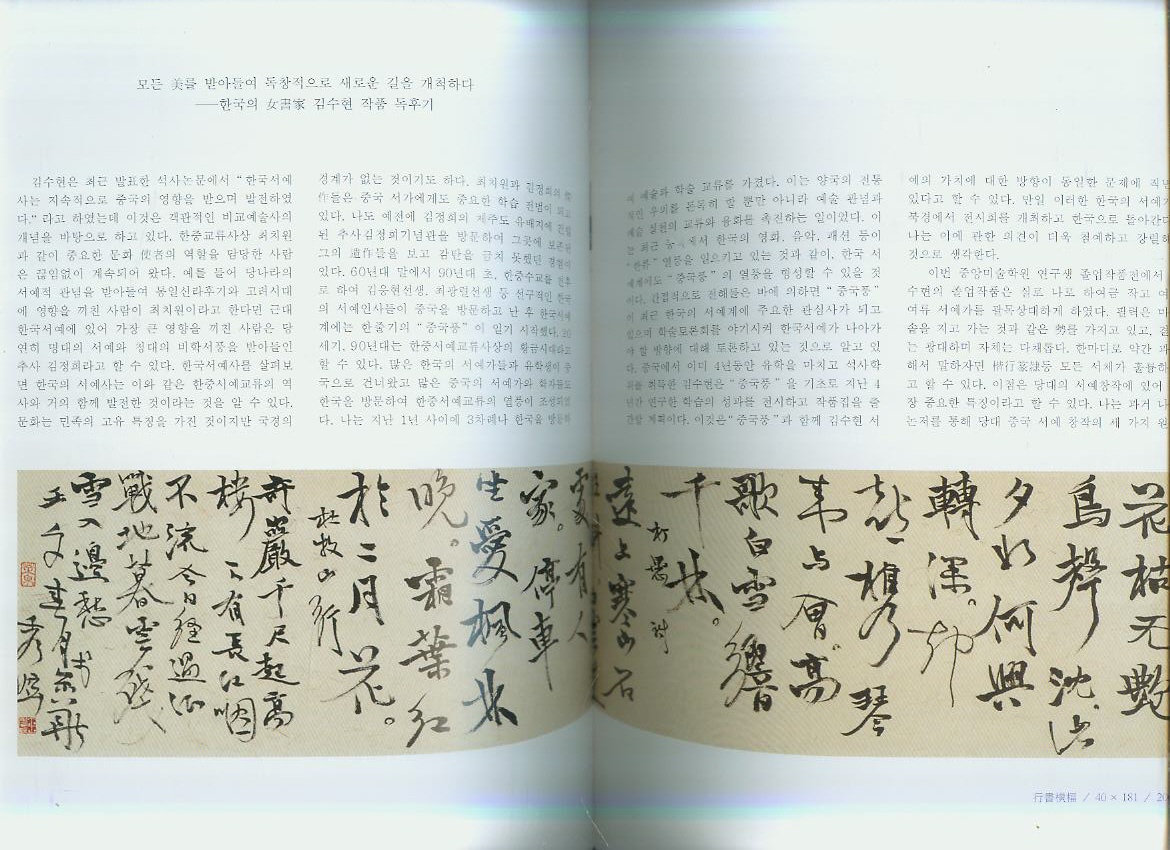 모든 美를 받아들여 독창적으로 새로운 길을 개척하다
──한국의 女書家 김수현 작품 독후기
김수현은 최근 발표한 석사논문에서 “한국서예
사는 지속적으로 중국의 영향을 받으며 발전하였
다.” 라고 하였는데 이것은 객관적인 비교예술사의
개념을 바탕으로 하고 있다. 한중교류사상 최치원
과 같이 중요한 문화 使者의 역할을 담당한 사람
은 끊임없이 계속되어 왔다. 예를 들어 당나라의
서예적 관념을 받아들여 통일신라후기와 고려시대
에 영향을 끼친 사람이 최치원이라고 한다면 근대
한국서예에 있어 가장 큰 영향을 끼친 사람은 당
연히 명대의 서예와 청대의 비학서풍을 받아들인
추사 김정희라고 할 수 있다. 한국서예사를 살펴보
면 한국의 서예사는 이와 같은 한중서예교류의 역
사와 거의 함께 발전한 것이라는 것을 알 수 있다.
문화는 민족의 고유 특징을 가진 것이지만 국경의
경계가 없는 것이기도 하다. 최치원과 김정희의
作들은 중국 서가에게도 중요한 학습 전범이 되고
있다. 나도 예전에 김정희의 제주도 유배지에 건립
된 추사김정희기념관을 방문하여 그곳에 보존된
그의 遺作들을 보고 감탄을 금치 못했던 경험이
있다. 60년대 말에서 90년대 초, 한중수교를 전후
로 하여 김응현선생, 최광렬선생 등 선구적인 한국
의 서예인사들이 중국을 방문하고 난 후 한국서예
계에는 한줄기의 “중국풍” 이 일기 시작했다. 20
세기, 90년대는 한중서예교류사상의 황금시대라고
할 수 있다. 많은 한국의 서예가들과 유학생이 중
국으로 건너왔고 많은 중국의 서예가와 학자들도
한국을 방문하여 한중서예교류의 열풍이 조성되었
다. 나는 지난 1년 사이에 3차례나 한국을 방문하
여 예술과 학술 교류를 가졌다. 이는 양국의 전통
적인 우의를 돈독히 할 뿐만 아니라 예술 관념과
예술 실천의 교류와 융화를 촉진하는 일이었다. 이
는 최근 중국에서 한국의 영화, 음악, 패션 등이
“한류” 열풍을 일으키고 있는 것과 같이, 한국 서
예계에도 “중국풍” 의 열풍을 형성할 수 있을 것
이다. 간접적으로 전해들은 바에 의하면 “중국풍”
이 최근 한국의 서예계에 주요한 관심사가 되고
있으며 학술토론회를 야기시켜 한국서예가 나아가
야 할 방향에 대해 토론하고 있는 것으로 알고 있
다. 중국에서 이미 4년동안 유학을 마치고 석사학
위를 취득한 김수현은 “중국풍” 을 기초로 지난 4
년간 연구한 학습의 성과를 전시하고 작품집을 출
간할 계획이다. 이것은 “중국풍” 과 함께 김수현 서
예의 가치에 대한 방향이 동일한 문제에
있다고 할 수 있다. 만일 이러한 한국의 서예가
북경에서 전시회를 개최하고 한국으로 돌아간
나는 이에 관한 의견이 더욱 첨예하고 강렬해
것으로 생각한다.
이번 중앙미술학원 연구생 졸업작품전에서
수현의 졸업작품은 실로 나로 하여금 작고
여류 서예가를 괄목상대하게 하였다. 필력은
솥을 지고 가는 것과 같은 勢를 가지고 있고,
는 광대하며 자체는 다채롭다. 한마디로 약간
해서 말하자면 楷行篆隸등 모든 서체가 훌륭하
고 할 수 있다. 이점은 당대의 서예창작에 있어
장 중요한 특징이라고 할 수 있다. 나는 과거
논저를 통해 당대 중국 서예 창작의 세 가지 원
花枯无艷
鳥聲沈沈
夕如何興
轉深。却
愁一樵琴
未与會。高
歌白雪響
千林。
遠上寒山石
家。停車
坐愛楓林
晚。霜葉紅
於二月花。
杜牧山行
奇巖千尺起高
樓 有長江咽
不流今日經過征
戰地暮雲殘
雪入邊愁
行書橫幅 / 40 × 181 / 20